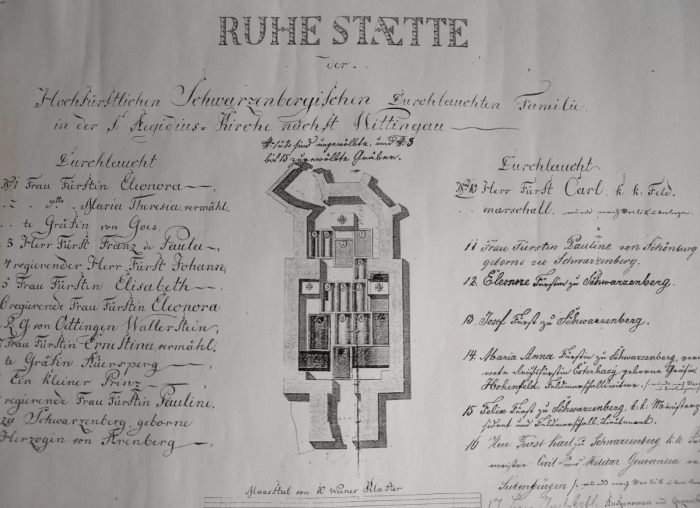 RUHE STÆTTE
der
Hochfürstlichen Schwarzenbergischen Durchlauchten Familie
in der St Aegidius-Kirche nächst Wittingau
№ 1 u 2 sind ungewölbte, und № 3
bis 15 zugewölbte Gräber.
Durchlaucht
№ 1 Frau Fürstin Eleonora
Maria Theresia, vermähl.
te Gräfin von Goes.
3 Herr Fürst Franz de Paula
4 regierender Herr Fürst Johann,
5 Frau Fürstin Elisabeth
6 regierende Frau Fürstin Eleonora
R.G. von Oettingen Wallerstein,
Frau Fürstin Ernestina, vermähl.
te Gräfin Auersperg
Ein kleiner Prinz
regierende Frau Fürstin Pauline,
zu Schwarzenberg, geborne
Herzogin von Arenberg
Durchlaucht
№ 10 Herr Fürst Carl k. k. Feld
marschall.
11 Frau Fürstin Pauline von Schönburg
geborne zu Schwarzenberg.
12. Eleonore Fürstin zu Schwarzenberg.
13 Josef Fürst zu Schwarzenberg.
14. Maria Anna Fürstin zu Schwarzenberg, verw
Esterhazy, geborne Gräfin
Hohenfeld, Feldmarschallwitwe
15 Felix Fürst zu Schwarzenberg, k. k. Minister
sident und Feldmarschall Lieutenant.
16 Herr Fürst Karl zu Schwarzenberg k. k.
meister Civil und Militär Gouverneur
Siebenbürgen
17
Maasstab von 10 Wiener Klafter